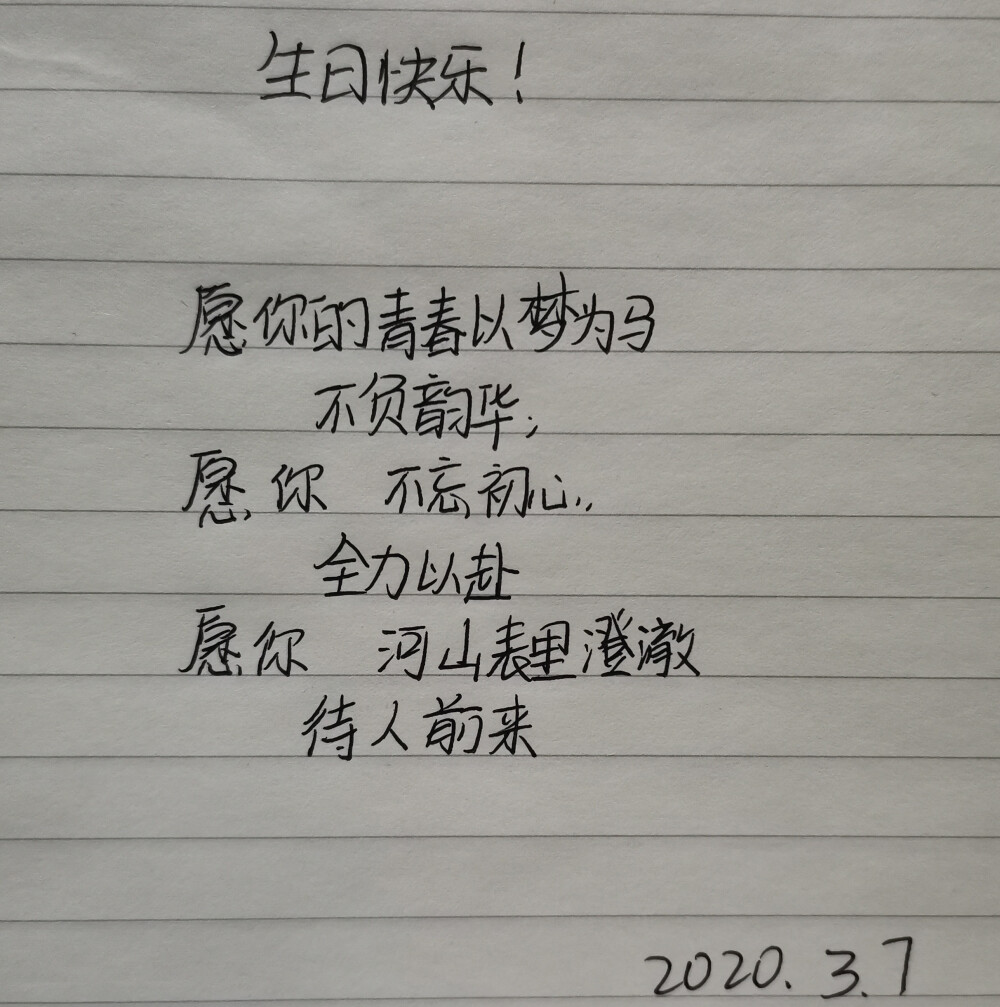 生日快乐！
愿你的青春以梦为马
不负韵华；
愿你 不忘初心，
全力以赴
愿你 河山表里澄澈
待人前来
2020.3.7